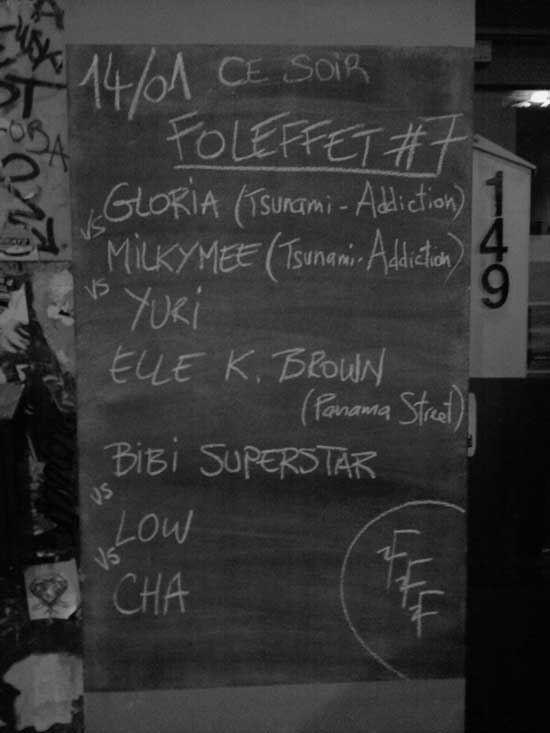 14/01 CE SOIR
FOLEFFET #7
GLORIA (Tsunami-Addiction)
vs
MILKYMEE (Tsunami-Addiction)
vs
YURI
ELLE K. BROWN
(Panama Street)
BIBI SUPERSTAR
vs
LOW
vs
CHA
FFF
149